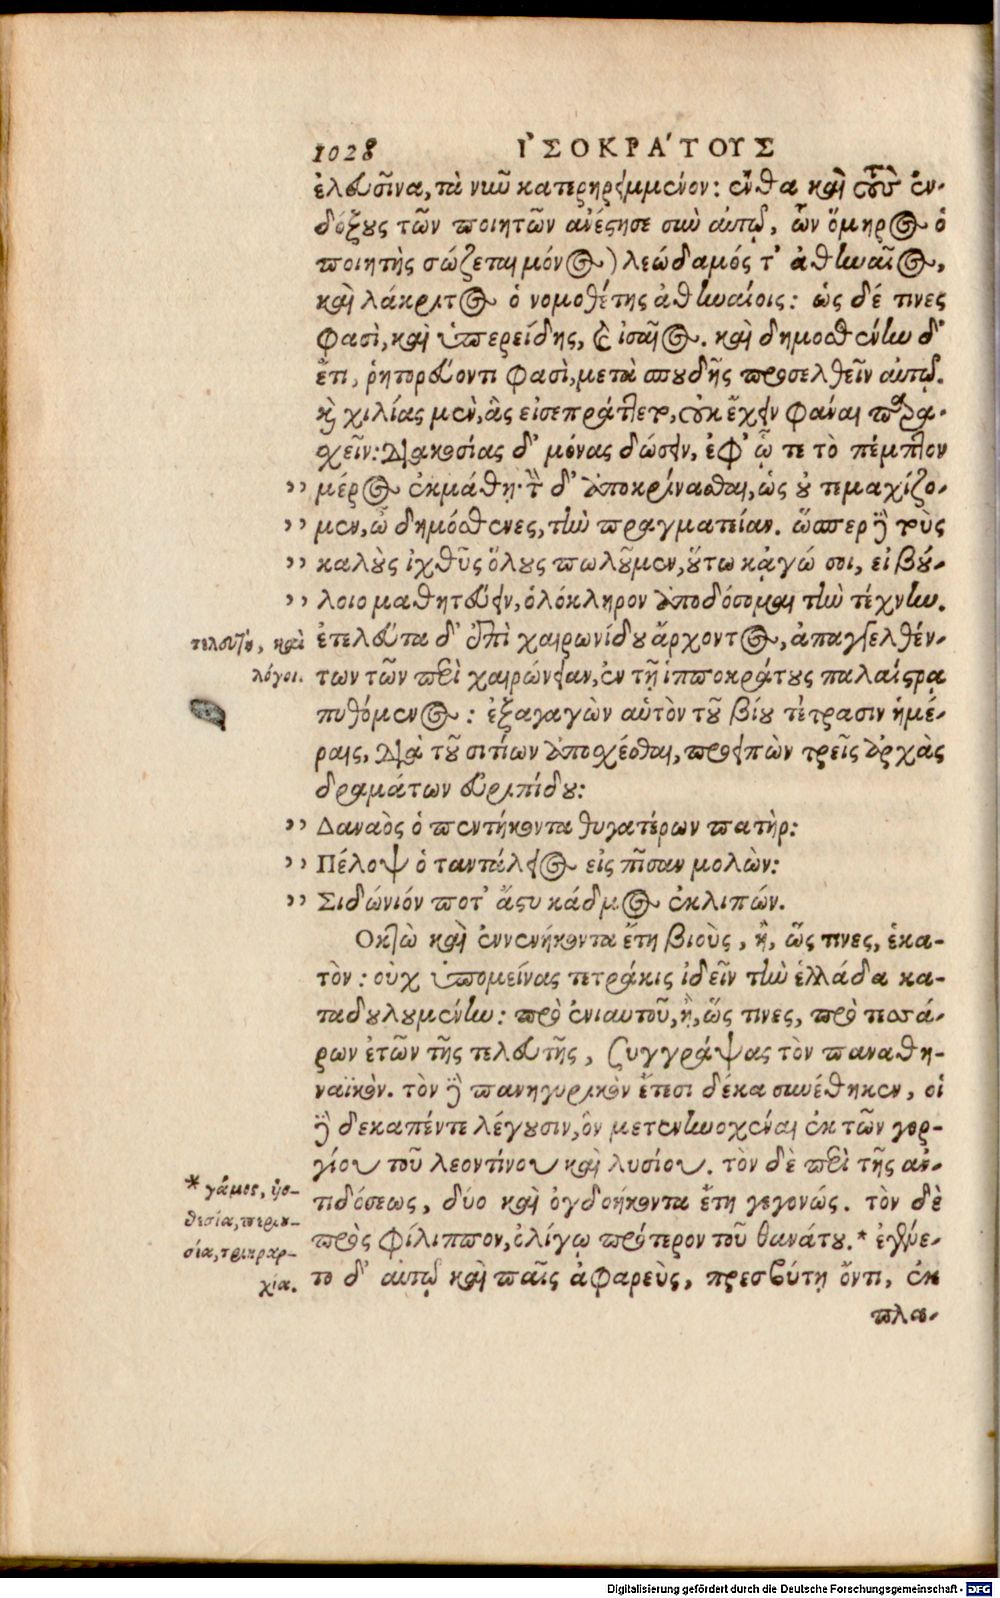 1028 ἸΣΟΚΡΆΤΟΥΣ
ἐλευσῖνα, τὰ νῦν κατερηρειμμένον: ἔνθα καὶ τοὺς ἐν-
δόξους τῶν ποιητῶν ἀνέστησε σὺν αὐτῷ, ὧν ὅμηρος ὁ
ποιητὴς σώζεται μόνος) λεώδαμός τ' ἀθηναῖος,
καὶ λάκριτος ὁ νομοθέτης ἀθηναίοις: ὡς δέ τινες
φασὶ, καὶ ὑπερείδης, καὶ ἰσαῖος. καὶ δημοσθένην δ'
ἔτι, ῥητορεύοντι φασὶ, μετὰ σπουδῆς προσελθεῖν αὐτῷ.
καὶ χιλίας μὲν, ἃς εἰσεπράττετο, οὐκ ἔχειν φάναι παρα-
σχεῖν: διακοσίας δ' μόνας δώσειν, ἐφ' ᾧ τε τὸ πέμπτον
,, μέρος ἐκμάθῃ. τὸν δ' ἀποκρίνασθαι, ὡς οὐ τεμαχίζο-
,, μεν, ὦ δημόσθενες, τὴν πραγματείαν. ὥσπερ δὲ τοὺς
,, καλοὺς ἰχθῦς ὅλους πωλοῦμεν, οὕτω κᾀγώ σοι, εἰ βού-
,, λοιο μαθητεύειν, ὁλόκληρον ἀποδόσομαι τὴν τέχνην.
τελευτὴ, καὶ
λόγοι.
ἐτελεύτα δ' ἐπὶ χαιρωνίδου ἄρχοντος, ἀπαγγελθέν-
των τῶν περὶ χαιρώνειαν, ἐν τῇ ἱπποκράτους παλαίστρα
πυθόμενος: ἐξαγαγὼν αὑτὸν τοῦ βίου τέτρασιν ἡμέ-
ραις, διὰ τοῦ σιτίων ἀποσχέσθαι, προειπὼν τρεῖς ἀρχὰς
δραμάτων εὐριπίδου:
,, Δαναὸς ὁ πεντήκοντα θυγατέρων πατὴρ:
,, Πέλοψ ὁ ταντάλειος εἰς πῖσαν μολὼν:
,, Σιδώνιόν ποτ' ἄστυ κάδμος ἐκλιπών.
Οκτὼ καὶ ἐννενήκοντα ἔτη βιοὺς, ἢ, ὥς τινες, ἑκα-
τὸν: οὐχ ὑπομείνας τετράκις ἰδεῖν τὴν ἑλλάδα κα-
ταδουλουμένην: πρὸ ἐνιαυτοῦ, ἢ, ὥς τινες, πρὸ τεσσά-
ρων ἐτῶν τῆς τελευτῆς, συγγράψας τὸν παναθη-
ναϊκὸν. τὸν δὲ πανηγυρικὸν ἔτεσι δέκα συνέθηκεν, οἱ
δὲ δεκαπέντε λέγουσιν, ὃν μετενηνοχέναι ἐκ τῶν γορ-
γίου τοῦ λεοντίνου καὶ λυσίου. τὸν δὲ περὶ τῆς ἀν-
τιδόσεως, δύο καὶ ὀγδοήκοντα ἔτη γεγονώς. τὸν δὲ
πρὸς φίλιππον, ὀλίγῳ πρότερον τοῦ θανάτου.* ἐγένε-
το δ' αὐτῷ καὶ παῖς ἀφαρεὺς, πρεσβύτῃ ὄντι, ἐκ
* γάμος, ὑο-
θεσία, περιου-
σία, τριηραρ-
χία.
πλα-
Digitalisierung gefördert durch die Deutsche Forschungsgemeinschaft - DFG